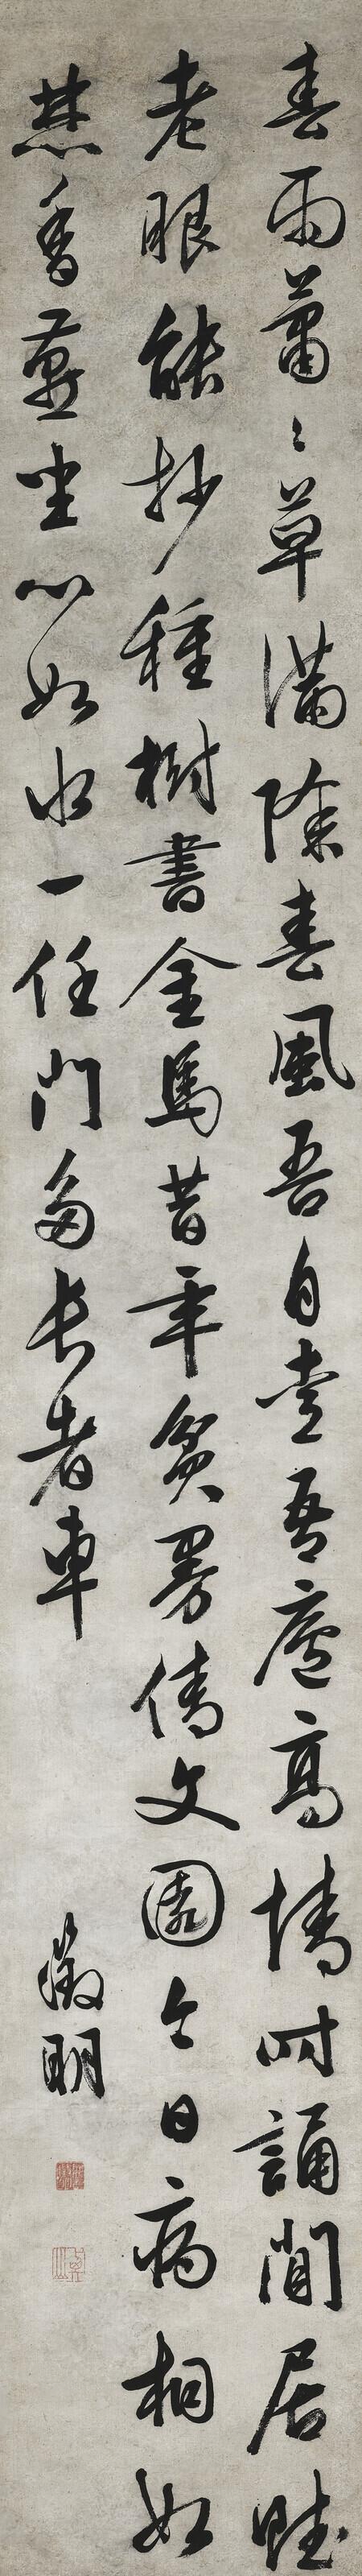 春雨蕭〻草滿除春風吾自愛吾廬高情时誦閒居賦
老眼能抄種樹書金馬昔年貧曼倩文園今日病相如
焚香燕坐心如水一任門多長者車
徵明